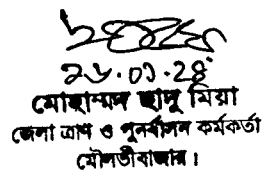 ২৮.০১.২৪
মোহাম্মদ ছাদু মিয়া
জেলা ত্রাণ ও পুনর্বাসন কর্মকর্তা
মৌলভীবাজার।